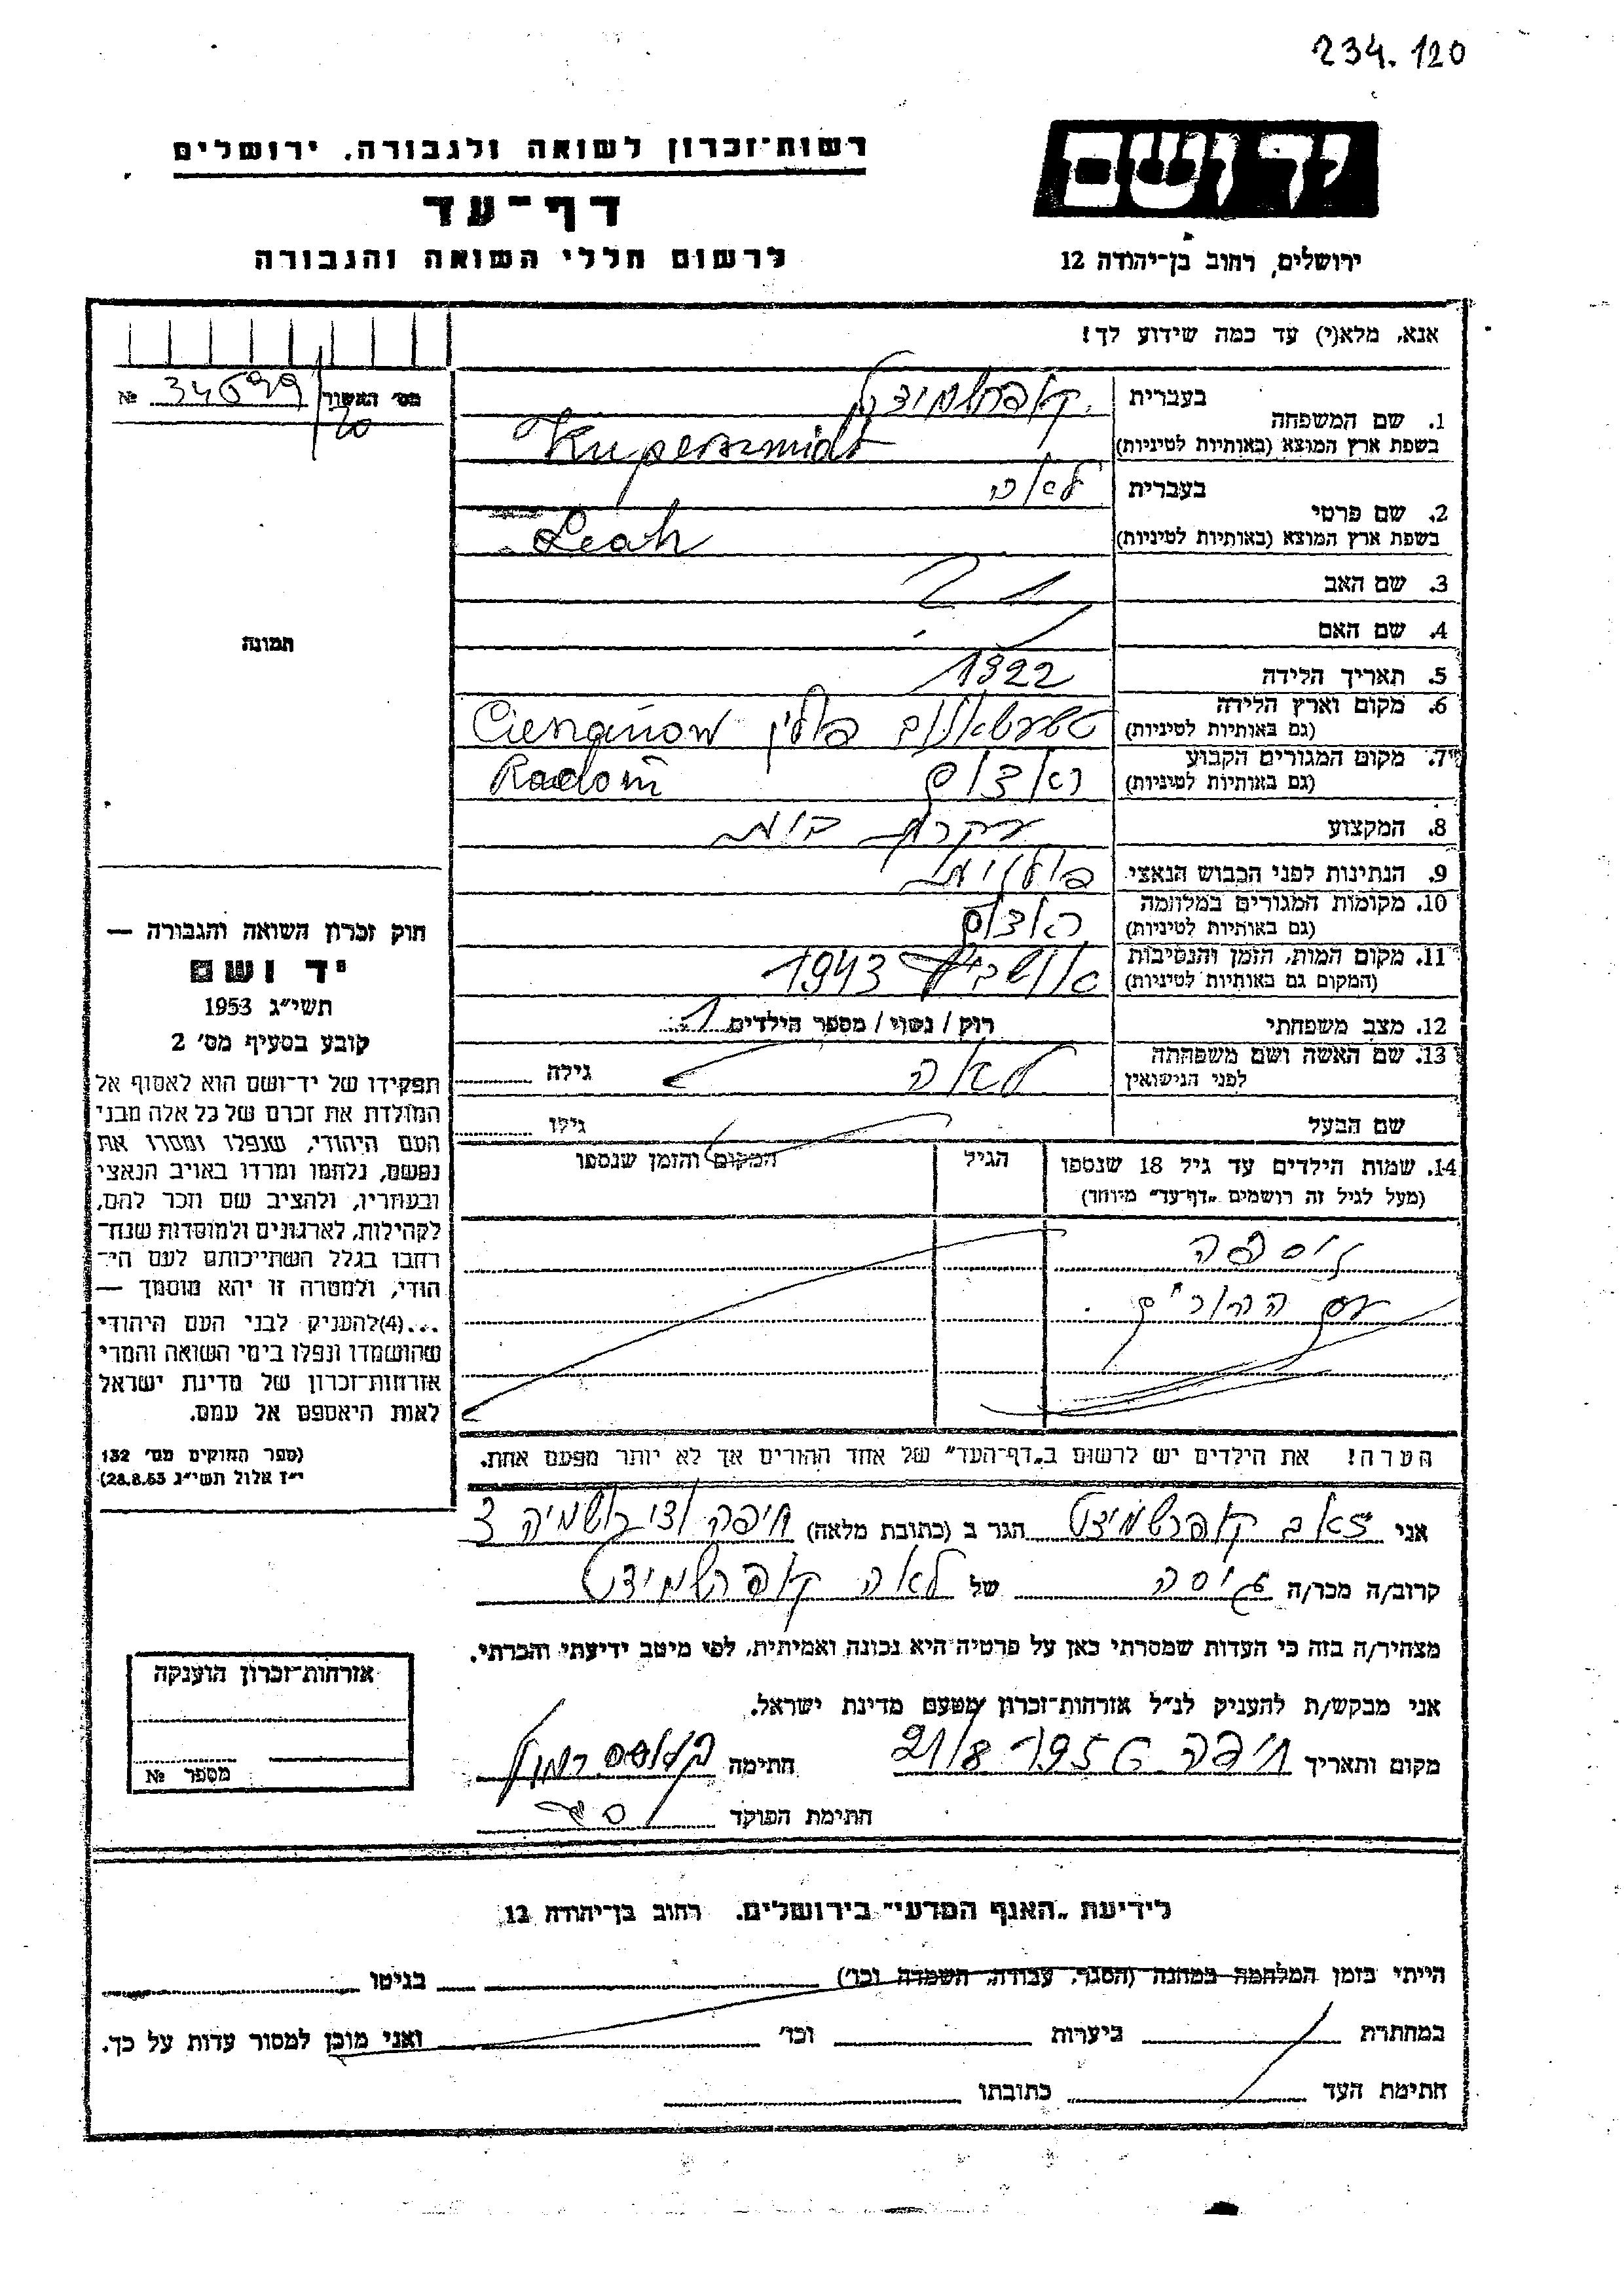 234.120
רשות־זכרון לשואה ולגבורה, ירושלים
יד ושם
דף־עד
לרשום חללי השואה והגבורה
ירושלים, רחוב בן־יהודה 12
אנא, מלא(י) עד כמה שידוע לך!
מס' האשור № 34699/20
1. שם המשפחה
בעברית קופרשמידט
בשפת ארץ המוצא (באותיות לטיניות) Kuperszmidt
2. שם פרטי
בעברית לאה
בשפת ארץ המוצא (באותיות לטיניות) Leah
3. שם האב
4. שם האם
5. תאריך הלידה 1922
6. מקום וארץ הלידה
(גם באותיות לטיניות) פולין
7. מקום המגורים הקבוע
(גם באותיות לטיניות) ראדום Radom
8. המקצוע עקרת בית
9. הנתינות לפני הכבוש הנאצי פולנית
10. מקומות המגורים במלחמה
(גם באותיות לטיניות) ראדום
11. מקום המות, הזמן והנסיבות
(המקום גם באותיות לטיניות) 1943
12. מצב משפחתי רוק / נשוי / מספר הילדים 1
13. שם האשה ושם משפחתה
לפני הנישואין לאה גילה
שם הבעל גילו
14. שמות הילדים עד גיל 18 שנספו
(מעל לגיל זה רושמים „דף־עד” מיוחד)
הגיל
המקום והזמן שנספו
נוספה
עם ההורים
הערה! את הילדים יש לרשום ב„דף־העד” של אחד ההורים אך לא יותר מפעם אחת.
תמונה
חוק זכרון השואה והגבורה —
יד ושם
תשי״ג 1953
קובע בסעיף מס' 2
תפקידו של יד־ושם הוא לאסוף אל
המולדת את זכרם של כל אלה מבני
העם היהודי, שנפלו ומסרו את
נפשם, נלחמו ומרדו באויב הנאצי
ובעוזריו, ולהציב שם וזכר להם,
לקהילות, לארגונים ולמוסדות שנח־
רבו בגלל השתייכותם לעם הי־
הודי, ולמטרה זו יהא מוסמך —
...(4)להעניק לבני העם היהודי
שהושמדו ונפלו בימי השואה והמרי
אזרחות־זכרון של מדינת ישראל
לאות היאספם אל עמם.
(ספר החוקים מס' 132
י״ז אלול תשי״ג 28.8.53)
אני זאב קופרשמידט הגר ב (כתובת מלאה) חיפה ואדי רושמיה
קרוב/ה מכר/ה גיסה של לאה קופרשמידט
מצהיר/ה בזה כי העדות שמסרתי כאן על פרטיה היא נכונה ואמיתית, לפי מיטב ידיעתי והכרתי.
אני מבקש/ת להעניק לנ״ל אזרחות־זכרון מטעם מדינת ישראל.
מקום ותאריך חיפה 21/8 1956 חתימה
חתימת הפוקד
אזרחות־זכרון הוענקה
מספר №
לידיעת „האגף המדעי” בירושלים, רחוב בן־יהודה 12
הייתי בזמן המלחמה במחנה (הסגר, עבודה, השמדה וכו') בגיטו
במחתרת ביערות וכו' ואני מוכן למסור עדות על כך.
חתימת העד כתובתו